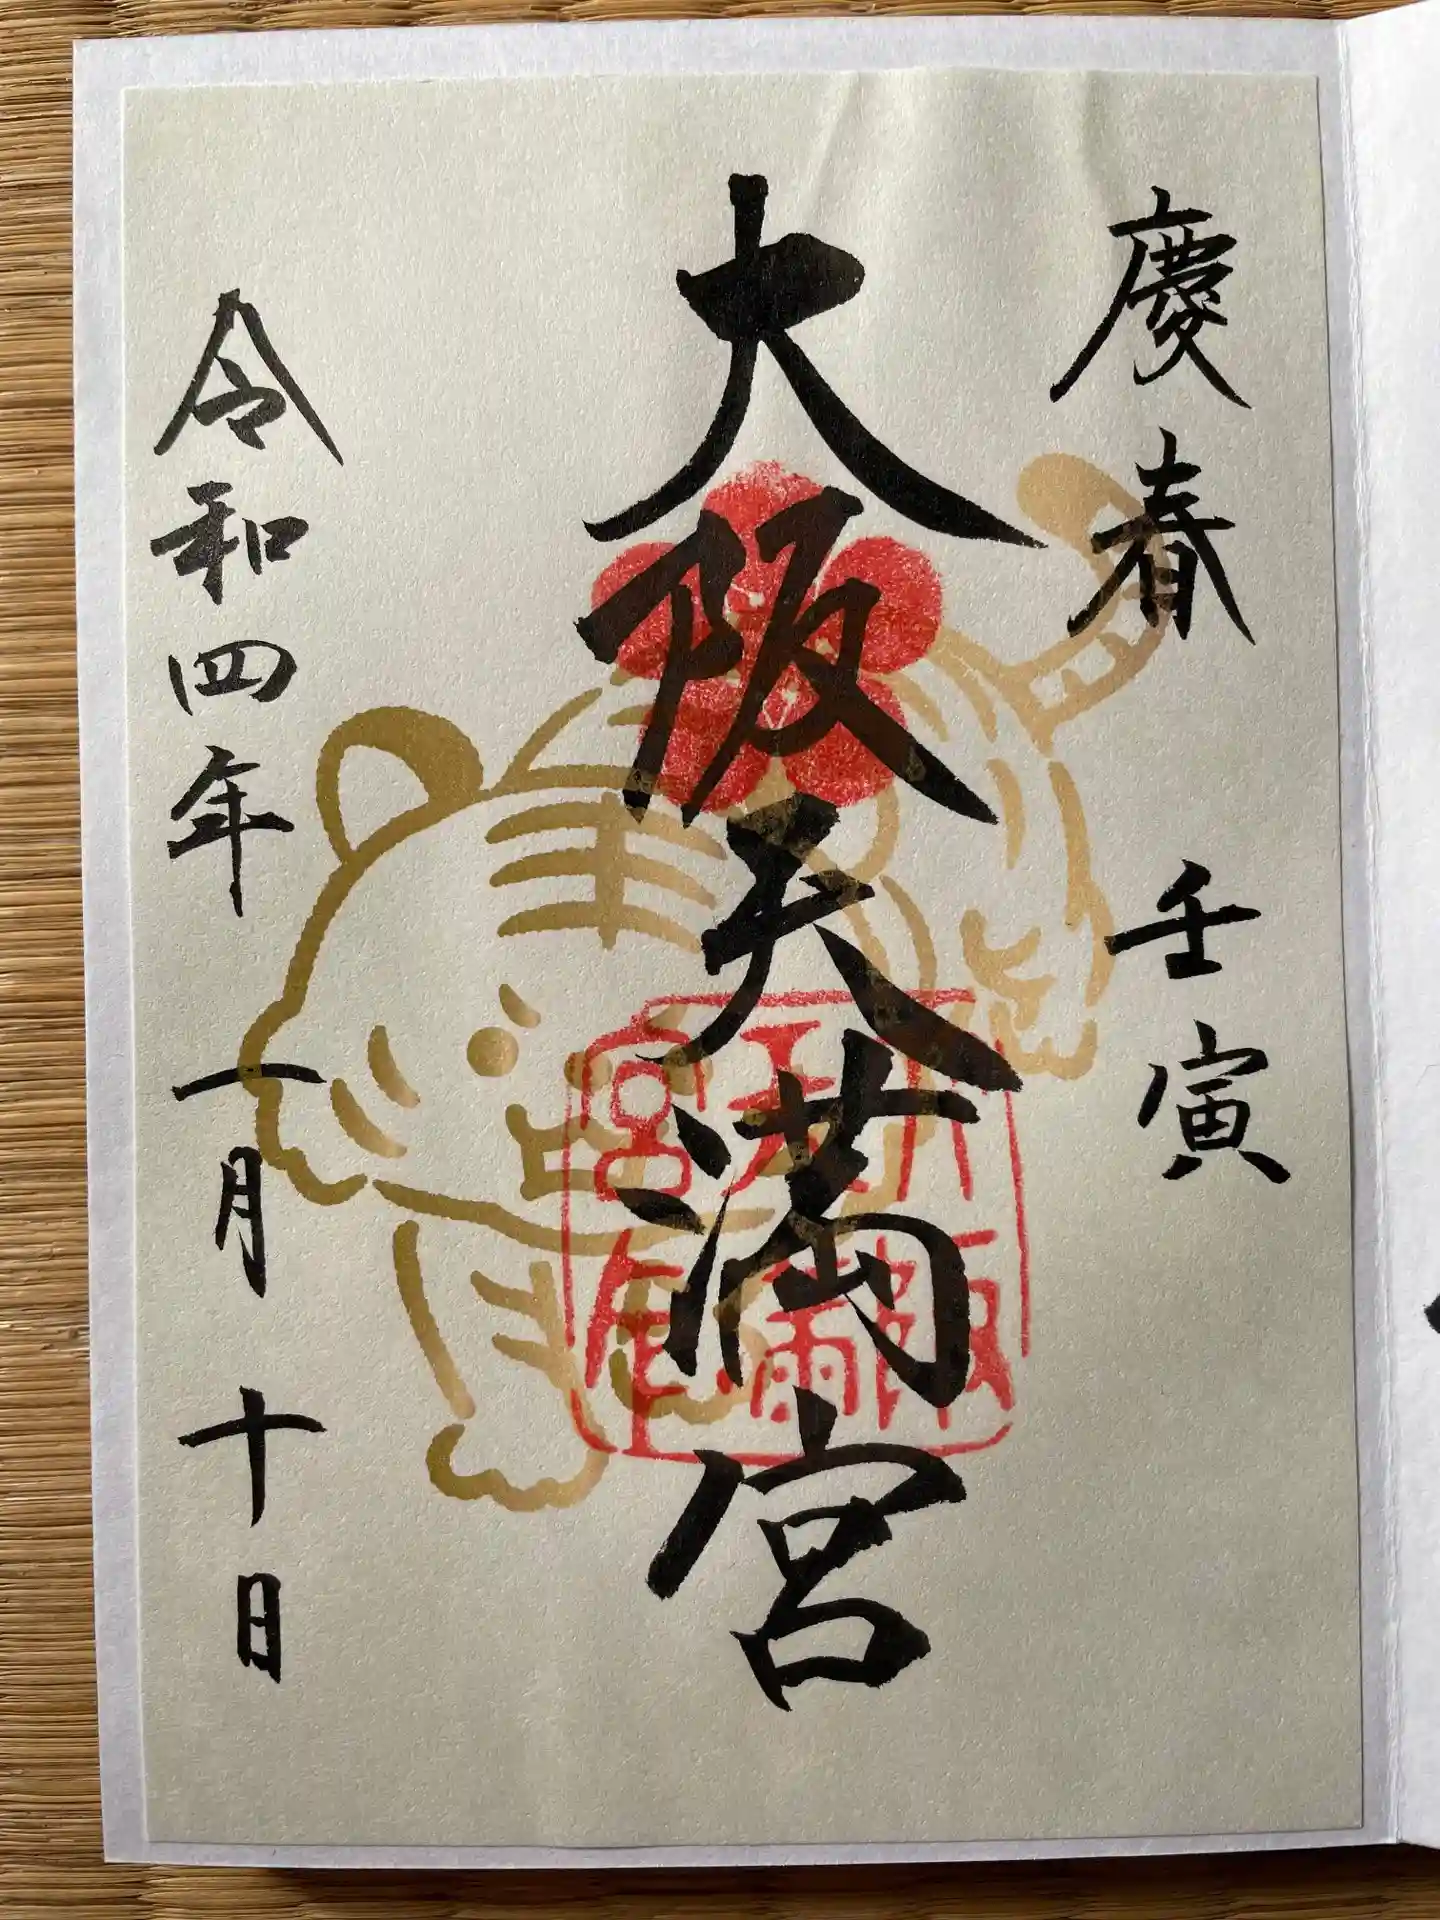 慶春 壬寅
大阪天満宮
令和四年一月十日
大阪天満宮